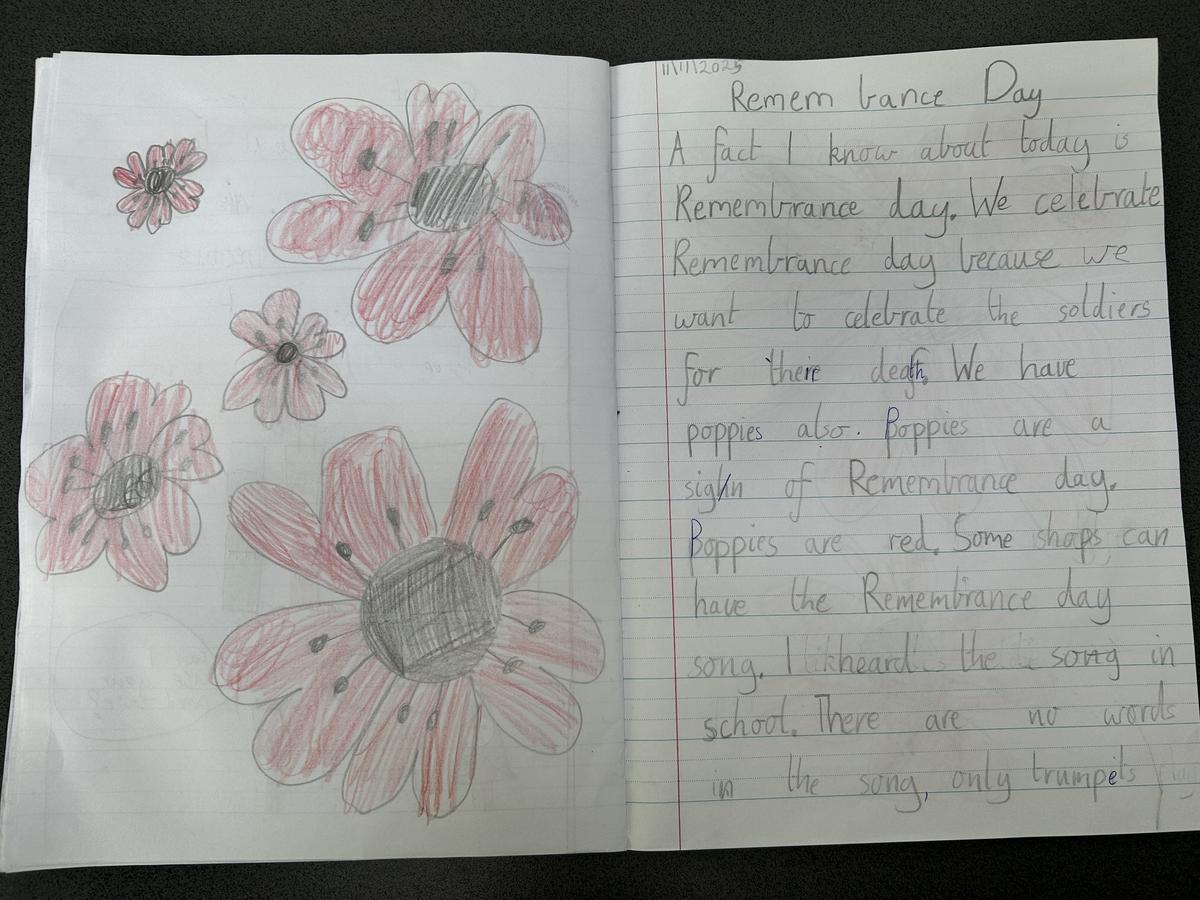 11/11/2025
Remembrance Day
A fact I know about today is
Remembrance day. We celebrate
Remembrance day because we
want to celebrate the soldiers
for their death. We have
poppies also. Poppies are a
sign of Remembrance day.
Poppies are red. Some shops can
have the Remembrance day
song. I heard the song in
school. There are no words
in the song, only trumpets